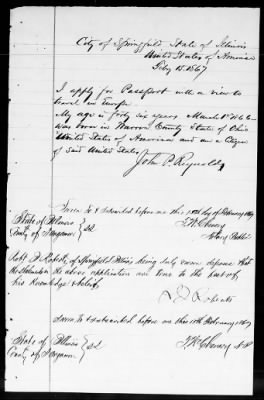 City of Springfield State of Illinois
United States of America
Feby 15. 1867
I apply for Passport with a view to
travel in Europe.
My age is forty six years March 1st 1866
was born in Warren County State of Ohio
United States of America and am a Citizen
of said United States.
John P. Reynolds
Sworn to & subscribed before me this 15th day of February 1867
Notary Public
State of Illinois } SS
County of Sangamon
Robt D. Roberts of Springfield Illinois being duly sworn deposes that
the statements in the above application are true to the best of
his knowledge & belief.
R D Roberts
Sworn to & subscribed before me this 15th February 1867
N P
State of Illinois } SS
County of Sangamon